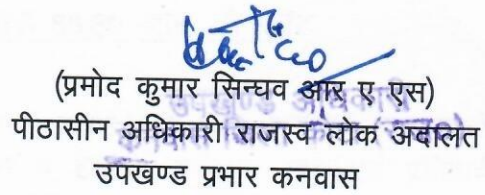 (प्रमोद कुमार सिन्घव आर ए एस)
पीठासीन अधिकारी राजस्व लोक अदालत
उपखण्ड प्रभार कनवास